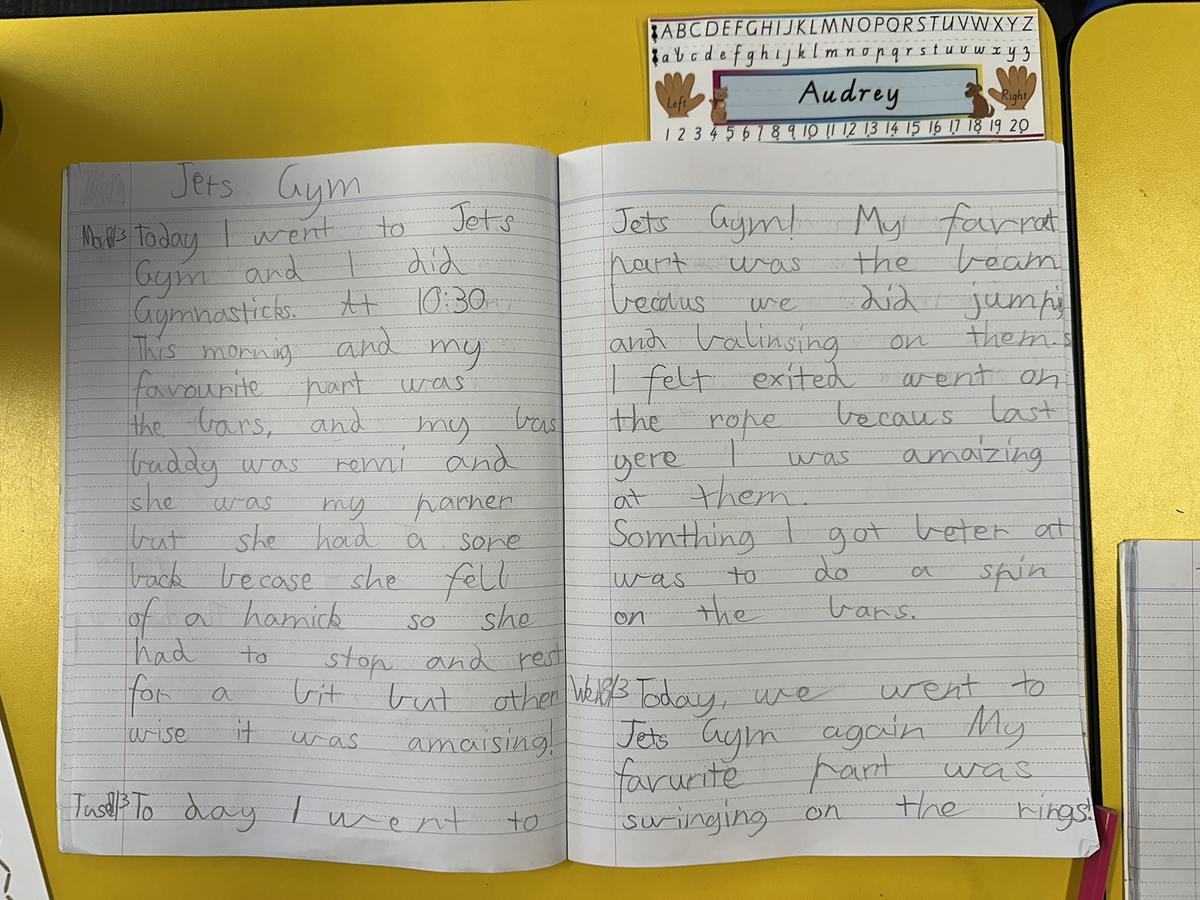 ABCDEFGHIJKLMNOPQRSTUVWXYZ
abcdefghijklmnopqrstuvwxyz
Left
Audrey
Right
1 2 3 4 5 6 7 8 9 10 11 12 13 14 15 16 17 18 19 20
Jets Gym
Today I went to Jets
Gym and I did
Gymnasticks. At 10:30
This mornig and my
favourite part was
the bars, and my bas
buddy was remi and
she was my parner
but she had a sore
back becase she fell
of a hamick so she
had to stop and rest
for a bit but other
wise it was amaising!
To day I went to
Jets Gym! My farrat
part was the beam
becaus we did jumps
and balinsing on them.
I felt exited went on
the rope becaus last
yere I was amaizing
at them.
Somthing I got beter at
was to do a spin
on the bars.
Today, we went to
Jets Gym again My
favurite part was
swinging on the rings!